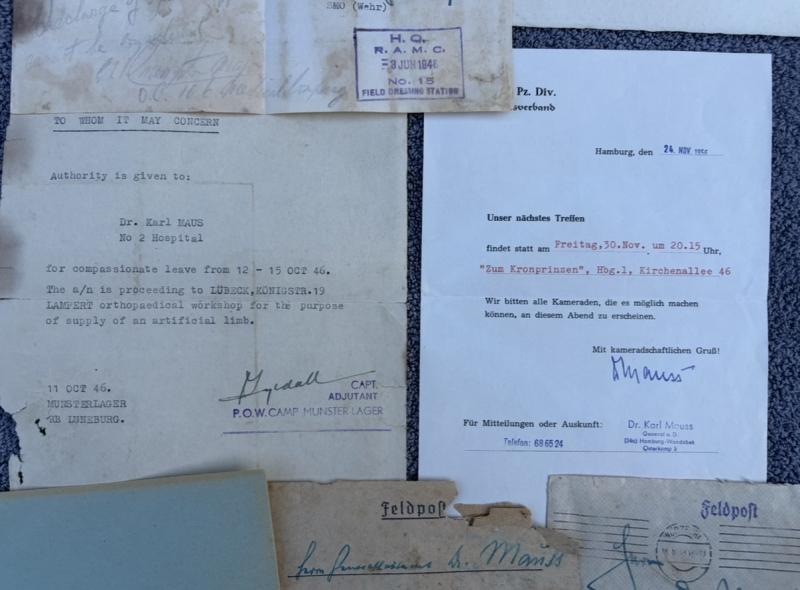 discharge of the
SMO (Wehr)
H.Q.
R.A.M.C.
3 JUN 1946
No. 15
FIELD DRESSING STATION
TO WHOM IT MAY CONCERN
Authority is given to:
Dr. Karl MAUS
No 2 Hospital
for compassionate leave from 12 - 15 OCT 46.
The a/n is proceeding to LÜBECK,KÖNIGSTR.19
LAMPERT orthopaedical workshop for the purpose
of supply of an artificial limb.
11 OCT 46.
MUNSTERLAGER
KB LUNEBURG.
CAPT.
ADJUTANT
P.O.W. CAMP MUNSTER LAGER
Pz. Div.
sverband
Hamburg, den 24. NOV.
Unser nächstes Treffen
findet statt am Freitag,30.Nov. um 20.15 Uhr,
"Zum Kronprinzen", Hbg.1, Kirchenallee 46
Wir bitten alle Kameraden, die es möglich machen
können, an diesem Abend zu erscheinen.
Mit kameradschaftlichen Gruß!
Mauss
Für Mitteilungen oder Auskunft:
Telefon: 68 65 24
Dr. Karl Mauss
General a. D.
(24a) Hamburg-Wandsbek
Osterkamp
Feldpost
Herrn Generalleutnant Dr. Mauss
Feldpost
Herrn